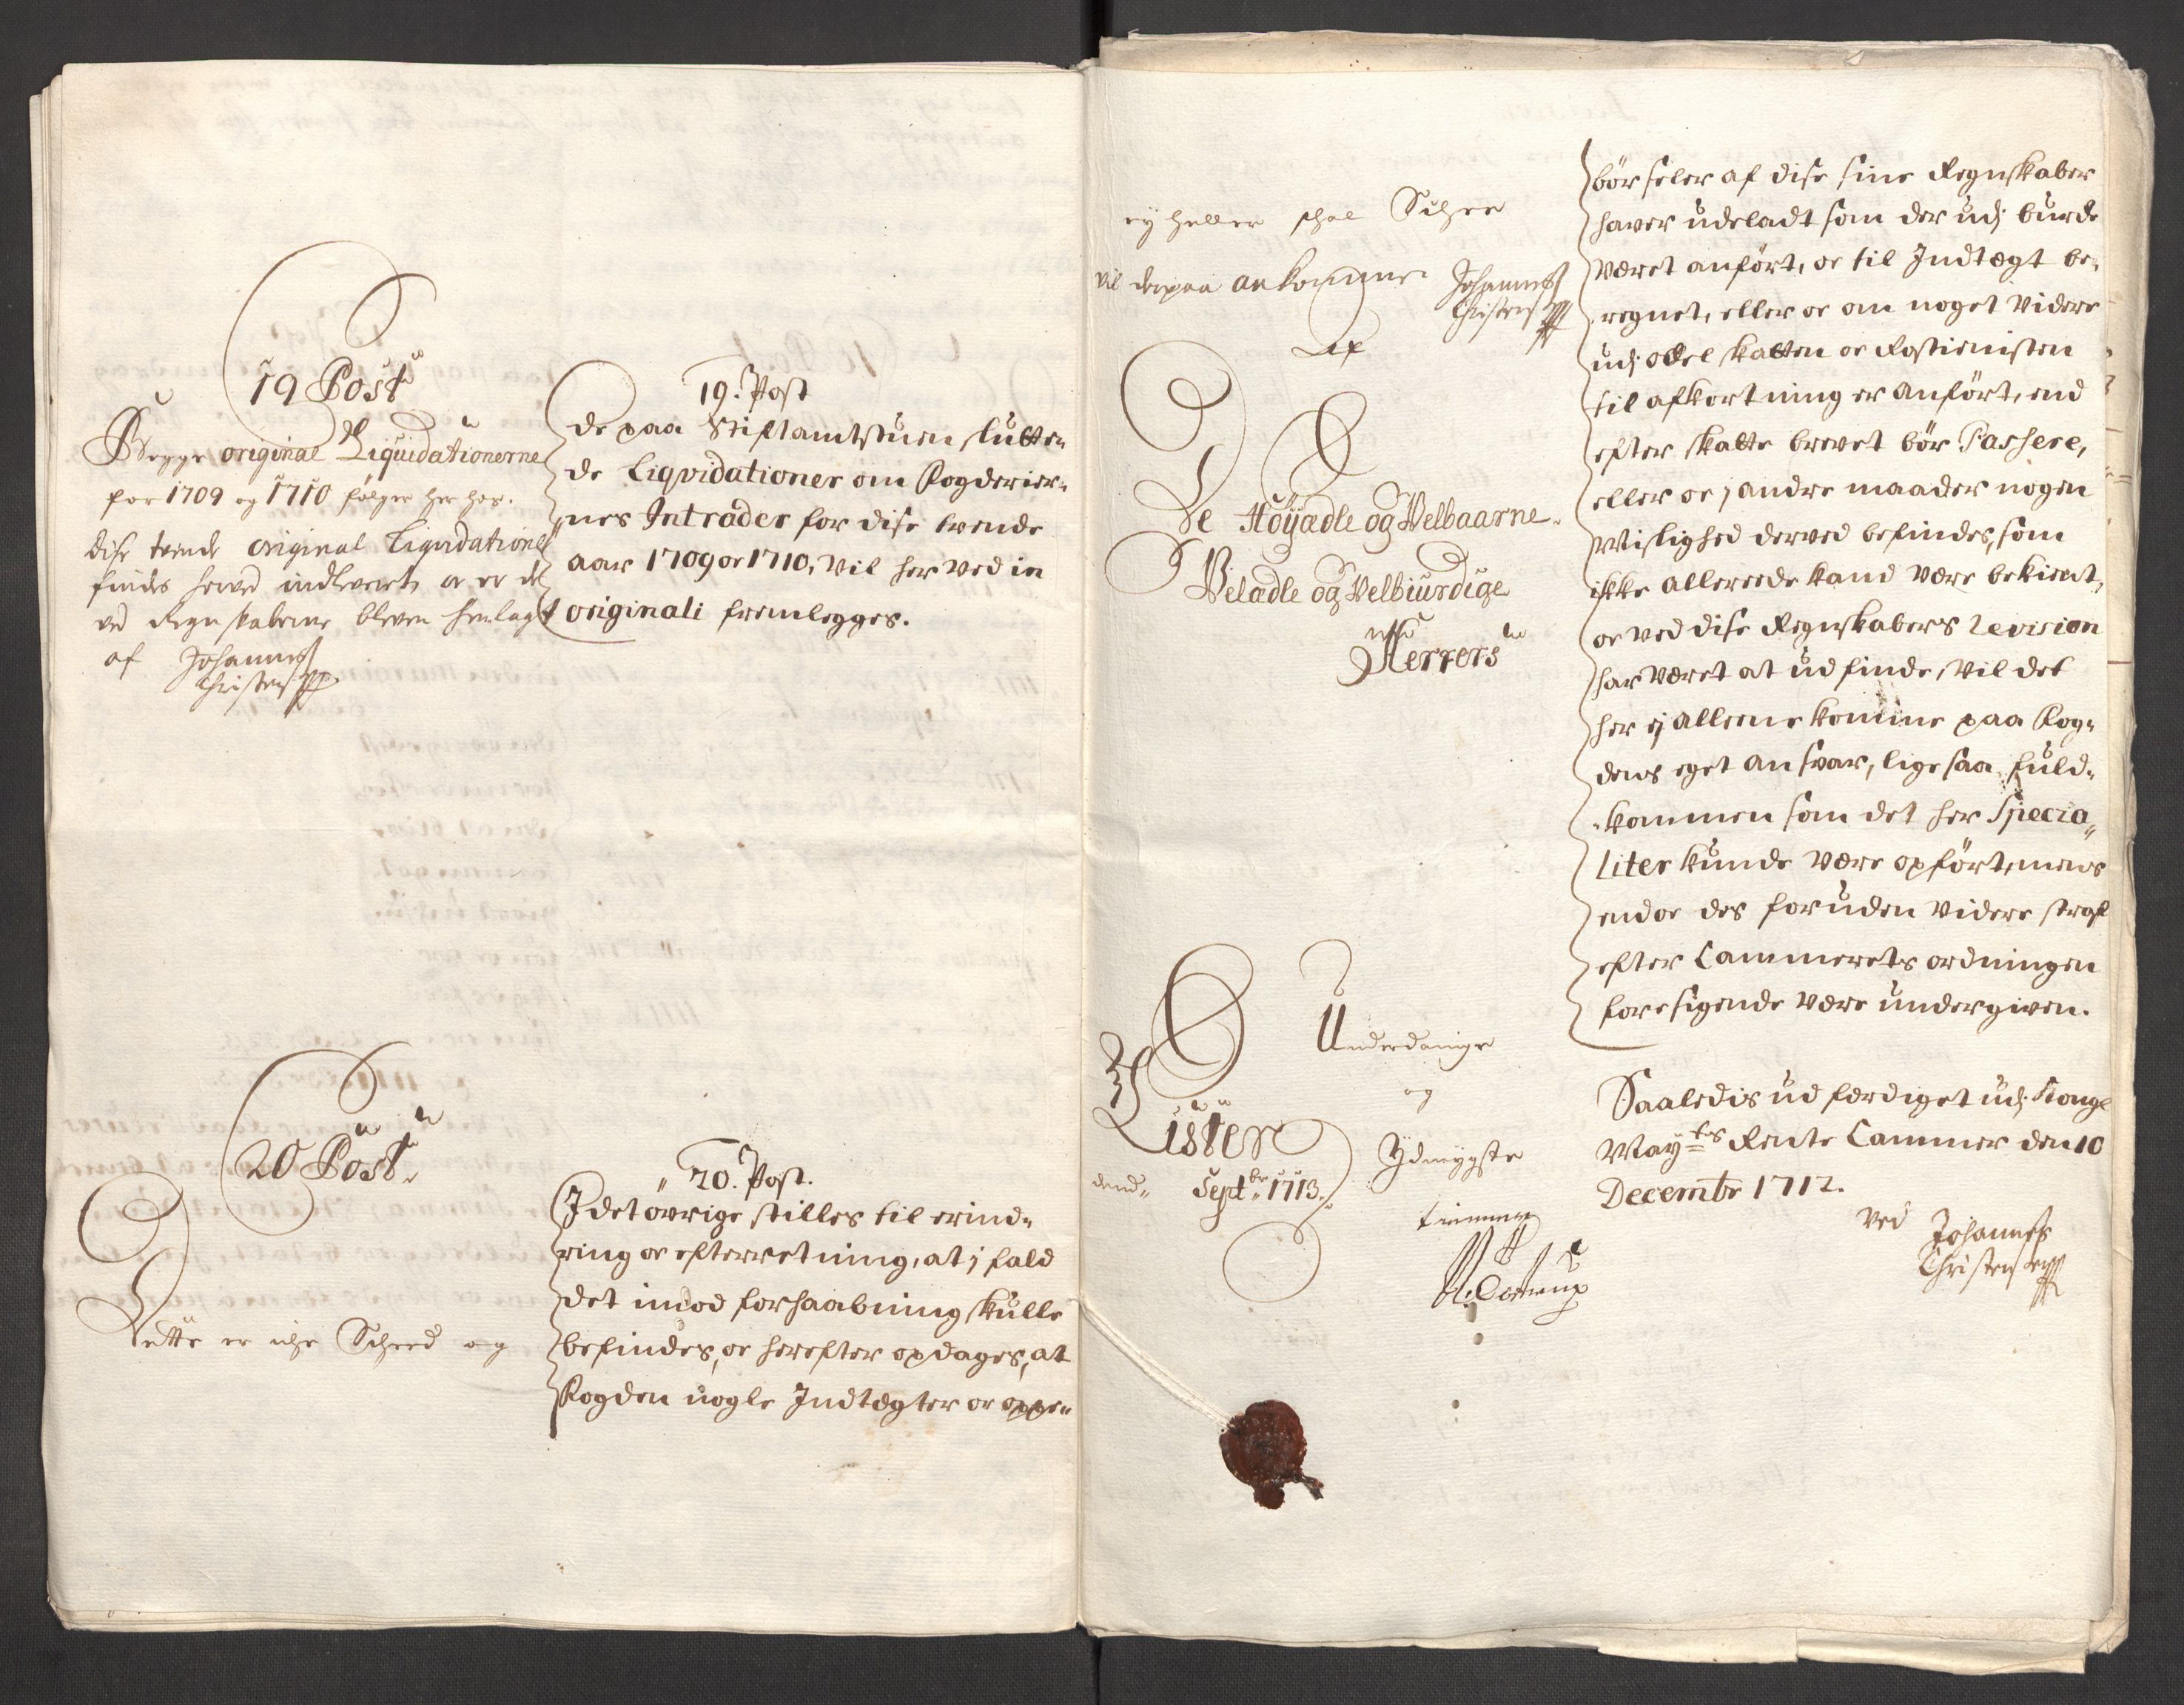 19 Post
Begge original Liquidationerne
for 1709 og 1710 følger her hos.
dise tvende original Liqvidationer
findes herved indleveret, oc er de
ved Regnskaberne bleven henlagt
af Johannes
Christens
19. Post
De paa Stiftamtstuen slutte-
de Liqvidationer om Fogderier-
nes Intrader for dise tvende
aar 1709 oc 1710, vil her ved in
originali fremlegges.
20 Post.
Dette er iche Scheed og
20. Post.
I det øvrige stilles til erind-
ring oc efterretning, at j fald
det imod forhaabning skulle
befindes, oc herefter opdages, at
Fogden nogle Indtegter oc oppe-
ey heller skal Schee
vil derpaa ankomme Johannes
Christens
De Höyædle og Welbaarne
Welædle og Welbiurdige
Herrers
Underdanige
og
Ydmygste
tienner
Lister
dend Septbr 1713.
bör seler af dise sine Regnskaber
haver udeladt som der udj burde
været anført, oc til Indtegt be-
regnet, eller oc om noget videre
udj odel skatten oc Rostienisten
til afkortning er anført, end
efter skatte brevet bör Passere,
eller oc j andre maader nogen
Mislighed derved befindes, som
ikke allerede kand være bekient,
oc ved dise Regnskabers Revision
har været at udfinde, vil det
her ej alleene komme paa Fog-
dens eget ansvar, lige saa fuld-
kommen som det her Specia-
liter kunde være opført, mens
endoc des foruden videre straf
efter Cammerets ordningen
foresigende være undergiven.
Saaledis ud færdiget udj Kongl
Maytes Rente Cammer den 10
Decembr 1712.
ved Johannes
Christens